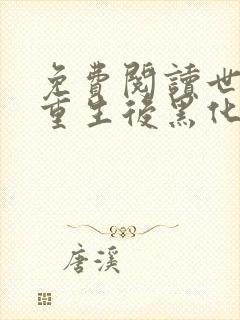 免費閱讀世
重生後黑化
唐溪